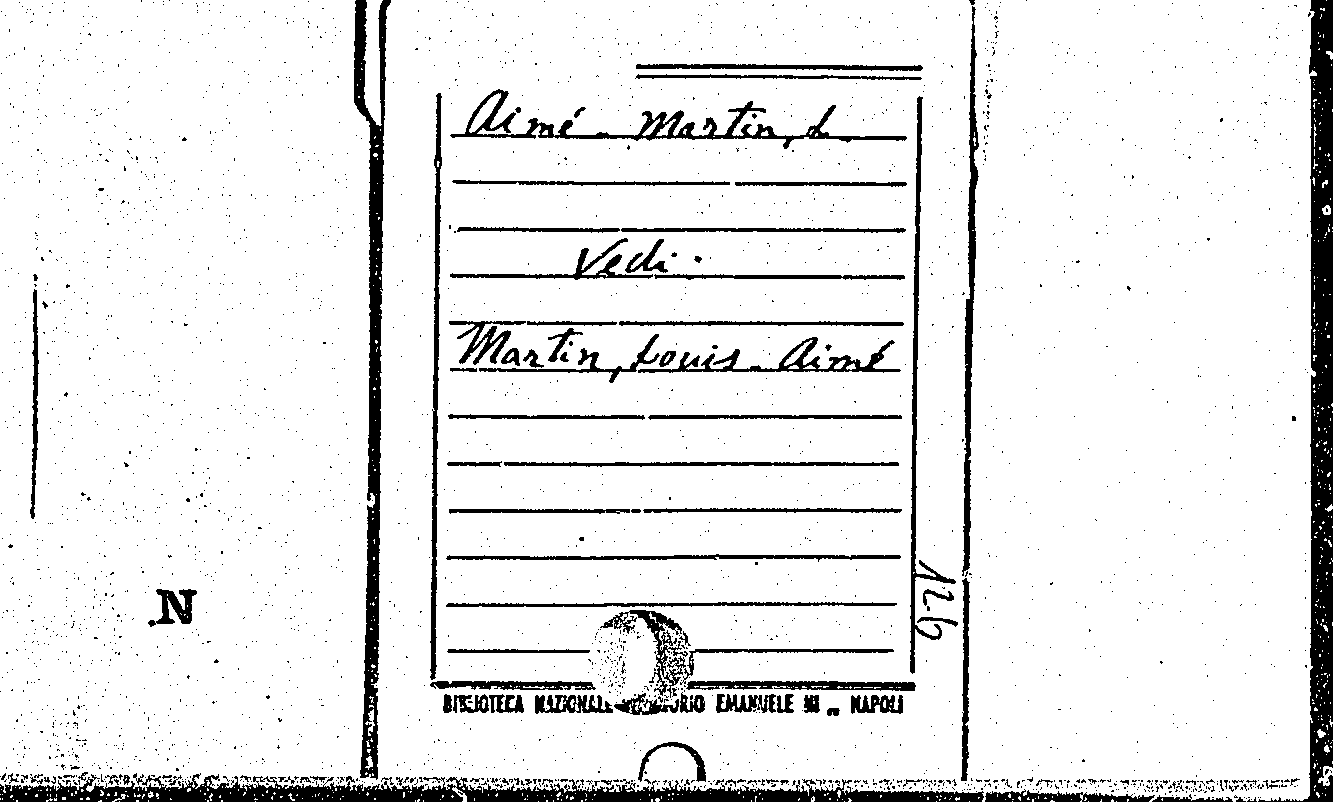 Aimé - Martin, L.
Vedi.
Martin, Louis - Aimé
126
.N
BIBLIOTECA NAZIONALE EMANUELE III - NAPOLI